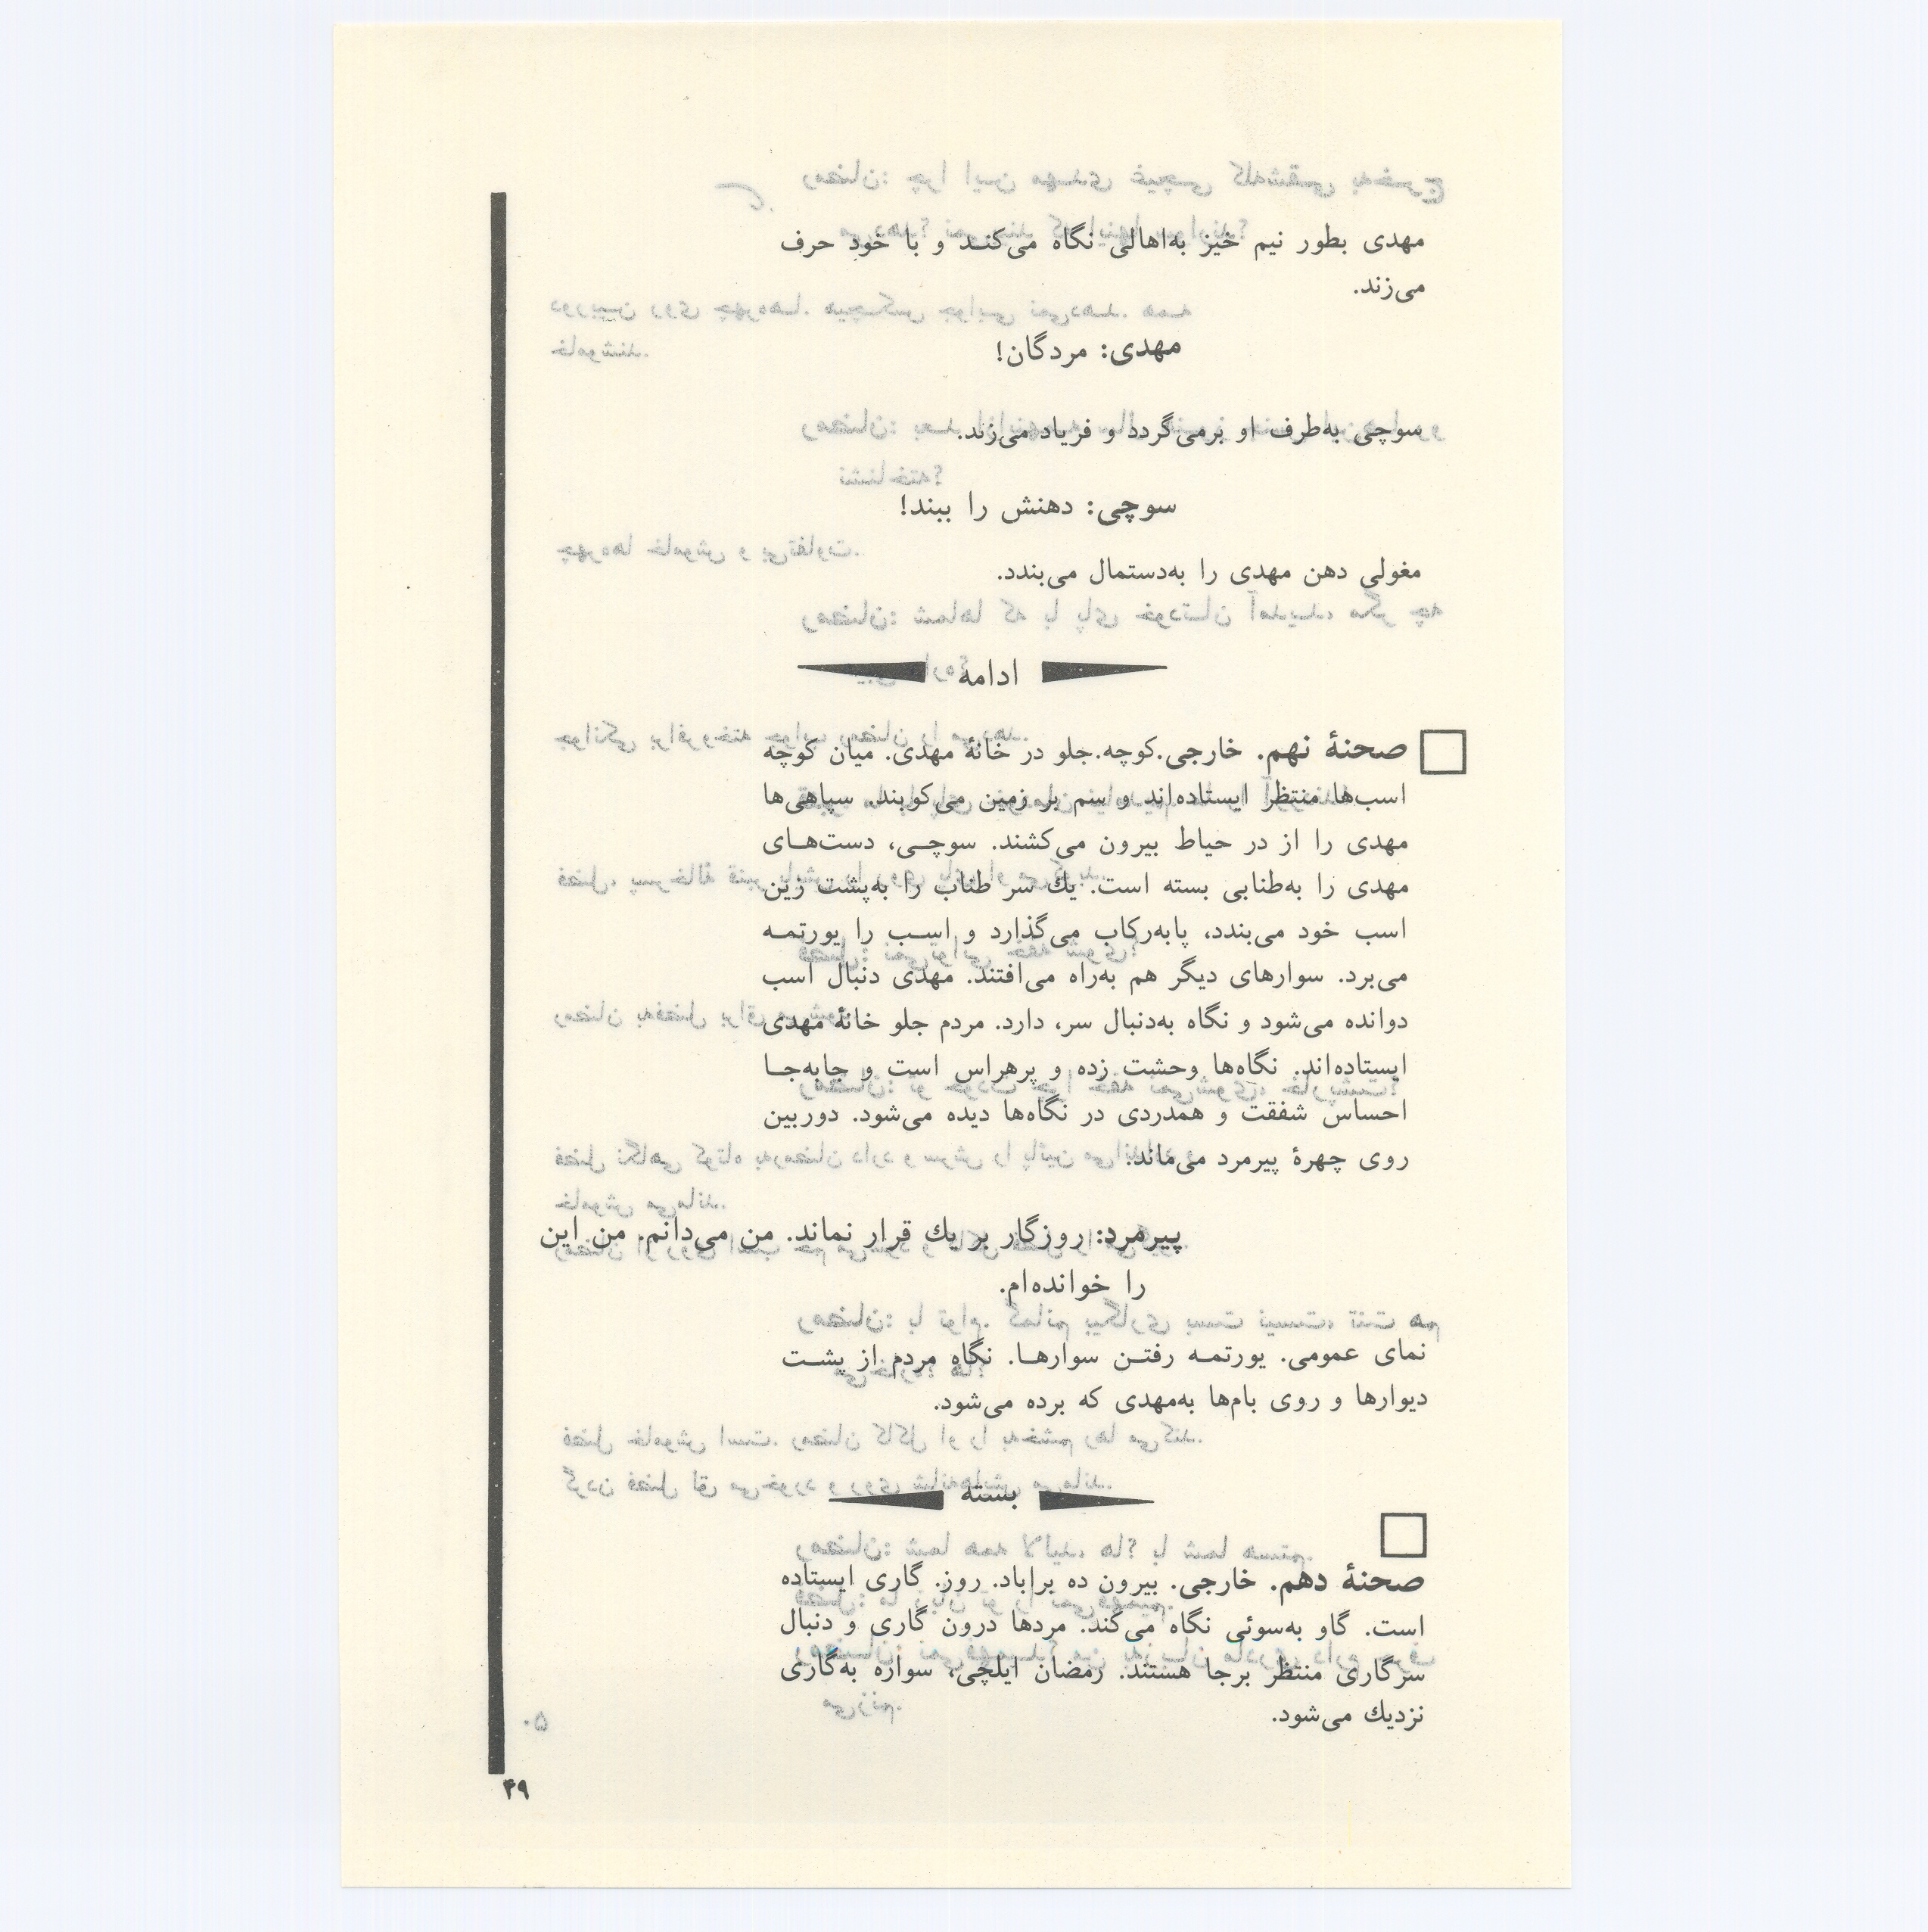 مهدی بطور نیم خیز به‌اهالی نگاه می‌کنـد و با خود حرف
می‌زند.
مهدی: مردگان!
سوچی به‌طرف او برمی‌گردد و فریاد می‌زند.
سوچی: دهنش را ببند!
مغولی دهن مهدی را به‌دستمال می‌بندد.
ادامه
صحنهٔ نهم. خارجی.کوچه.جلو در خانهٔ مهدی. میان کوچه
اسب‌ها منتظر ایستاده‌اند و سم بر زمین می‌کوبند. سپاهی‌ها
مهدی را از در حیاط بیرون می‌کشند. سوچـی، دست‌هـای
مهدی را به‌طنابی بسته است. یك سر طناب را به‌پشت زین
اسب خود می‌بندد، پابه‌رکاب می‌گذارد و اسـب را یورتمـه
می‌برد. سوارهای دیگر هم به‌راه می‌افتند. مهدی دنبال اسب
دوانده می‌شود و نگاه به‌دنبال سر، دارد. مردم جلو خانهٔ مهدی
ایستاده‌اند. نگاه‌ها وحشت زده و پرهراس است و جابه‌جـا
احساس شفقت و همدردی در نگاه‌ها دیده می‌شود. دوربین
روی چهرهٔ پیرمرد می‌ماند.
پیرمرد: روزگار بر یك قرار نماند. من می‌دانم. من این
را خوانده‌ام.
نمای عمومی. یورتمـه رفتـن سوارهـا. نگاه مردم از پشـت
دیوارها و روی بام‌ها به‌مهدی که برده می‌شود.
بسته
صحنهٔ دهم. خارجی. بیرون ده براباد. روز. گاری ایستاده
است. گاو به‌سوئی نگاه می‌کند. مردها درون گاری و دنبال
سرگاری منتظر برجا هستند. رمضان ایلچی، سواره به‌گاری
نزدیك می‌شود.
۴۹